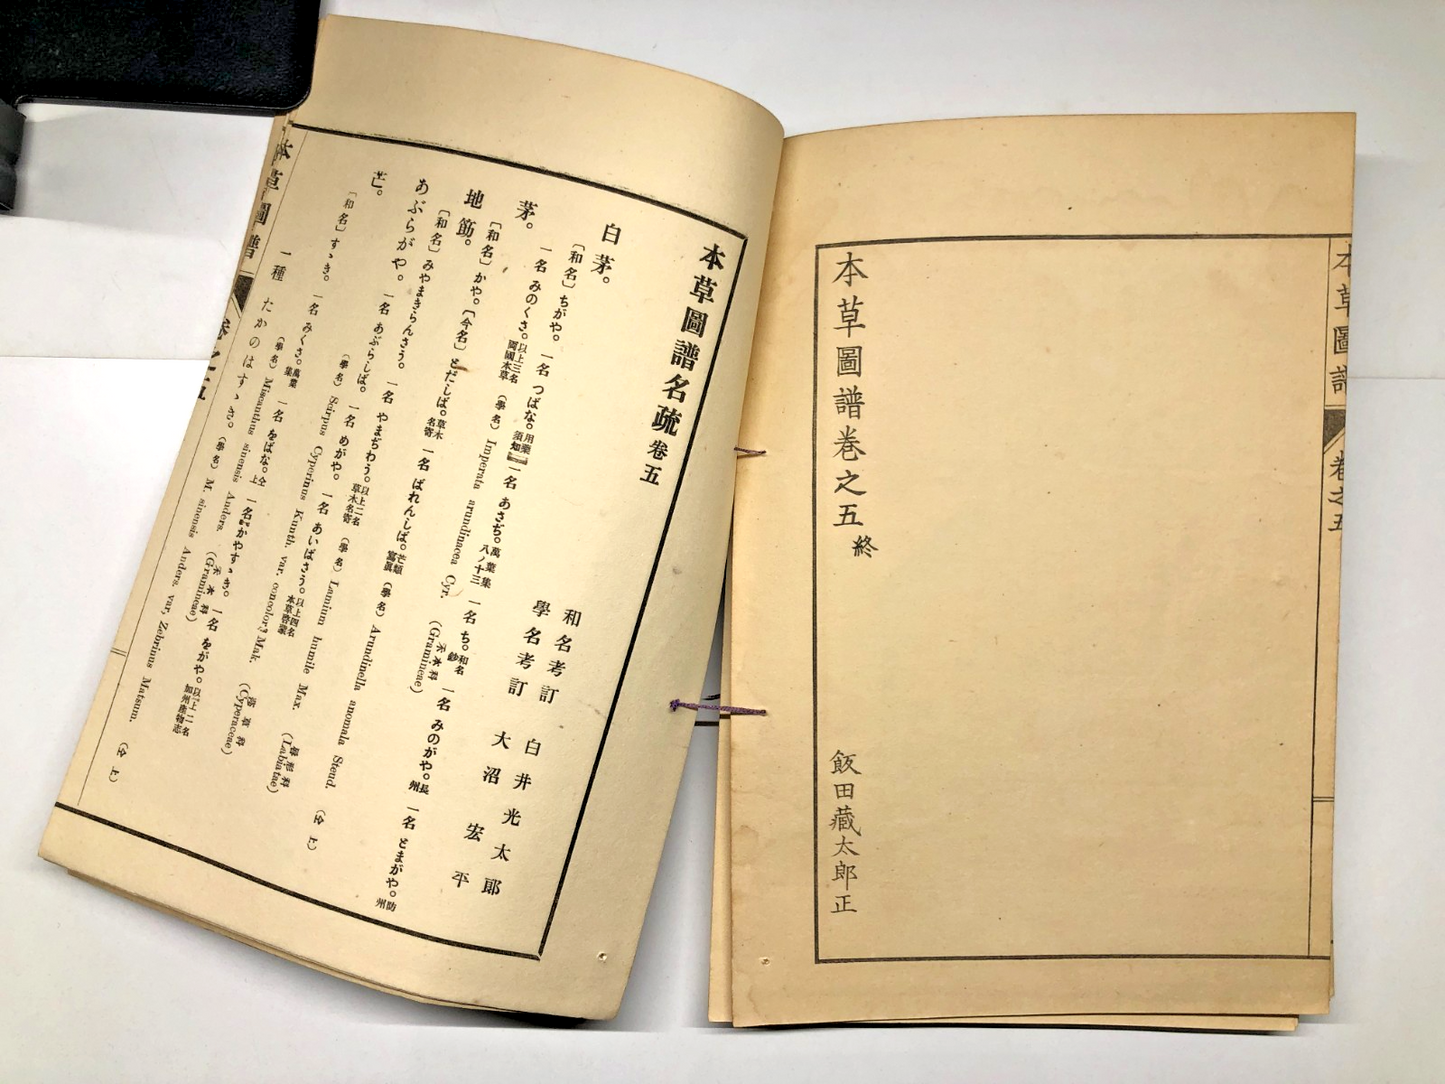 本草圖譜卷之五
本草圖譜卷之五 終
飯田藏太郎正
本草圖譜名疏 卷五
和名考訂 白井光太郎
學名考訂 大沼宏平
白茅。
〔和名〕ちがや。 一名 つばな。用藥須知 一名 あさぢ。萬葉集八ノ十三 一名 ち。和名鈔 一名 みのがや。長州 一名 とまがや。防州
一名 みのくさ。以上三名岡國本草 (學名) Imperata arundinacea Cyr. (禾本科 Gramineae)
茅。
〔和名〕かや。〔今名〕とだしば。草木名寄 一名 ばれんしば。芒類寫眞 (學名) Arundinella anomala Steud. (仝上)
地筋。
〔和名〕みやまきらんさう。 一名 やまぢわう。以上二名草木名寄 (學名) Lamium humile Max. (脣形科 Labiatae)
あぶらがや。 一名 あぶらしば。 一名 めがや。 一名 あいばさう。以上四名本草啓蒙
(學名) Scirpus Cyperinus Kunth. var. concolor, Mak. (莎草科 Cyperaceae)
芒。
〔和名〕すゝき。 一名 みくさ。萬葉集 一名 をばな。仝上 一名 かやすゝき。 一名 をがや。以上二名加州產物志
(學名) Miscanthus sinensis Anders. (禾本科 Gramineae)
一種 たかのはすゝき。 (學名) M. sinensis Anders. var, Zebrinus Matsum. (仝上)
本草圖譜 卷之五